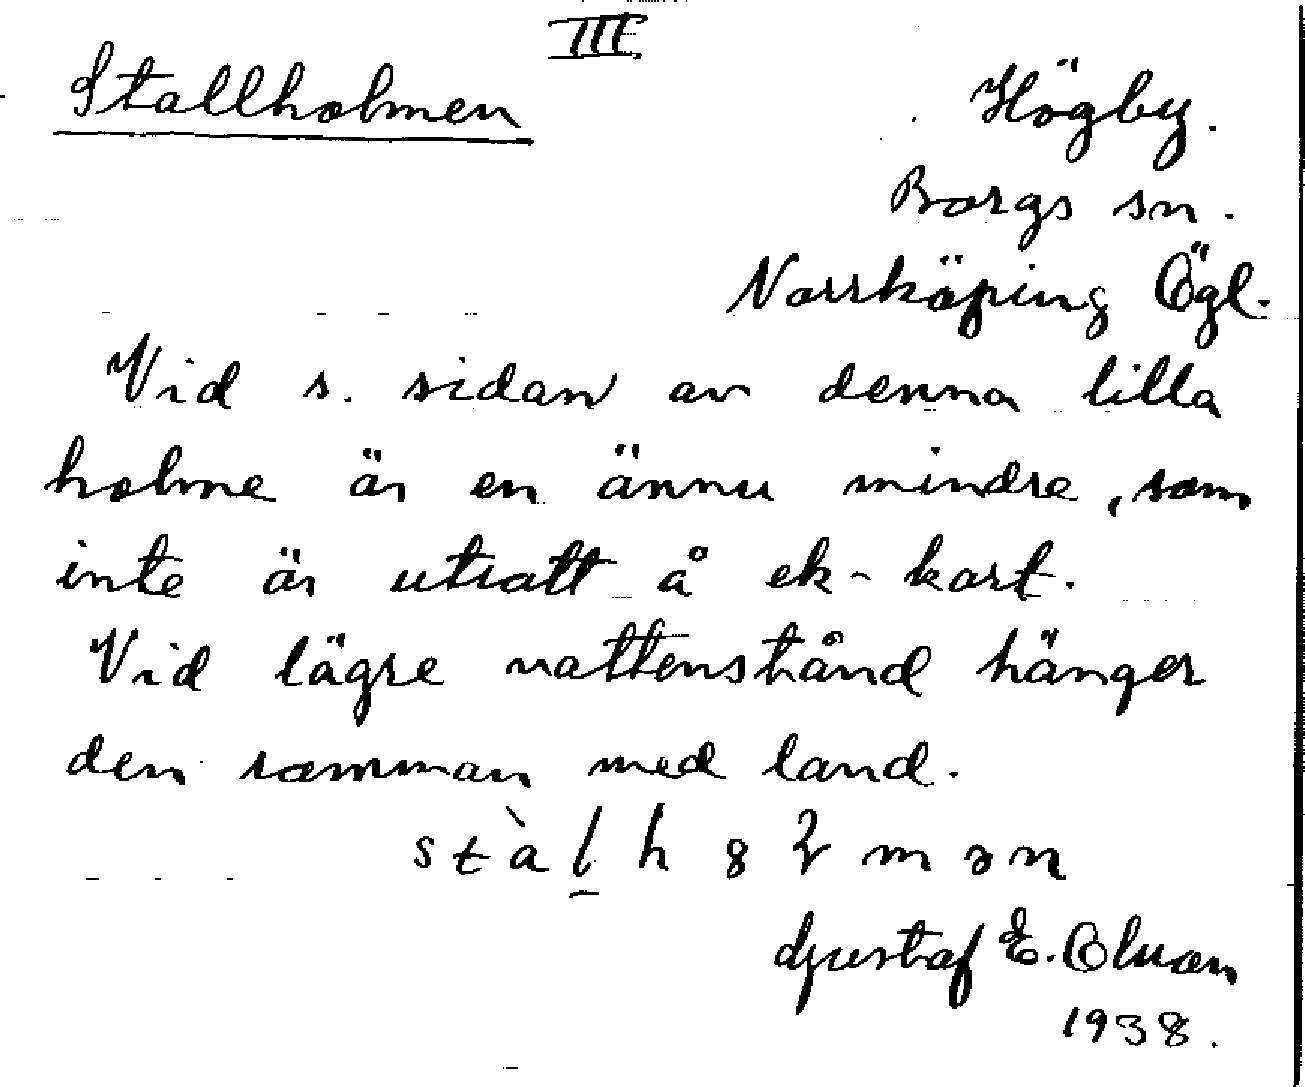 III
Stallholmen
Högby.
Borgs sn.
Norrköping Ögl.
Vid s. sidan av denna lilla
holme är en ännu mindre, som
inte är utsatt å ek-kart.
Vid lägre vattenstånd hänger
den samman med land.
stàl̲h8ɫmən
Gustaf E. Olsson
1938.